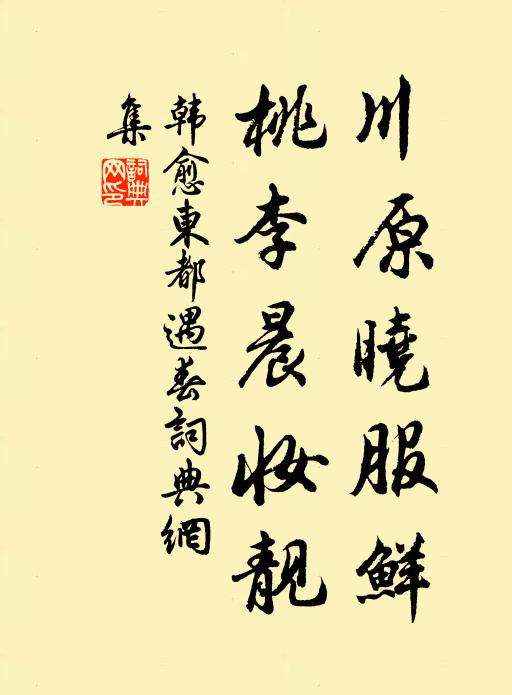 川原曉服鮮
桃李晨妝靚
韩愈東都遇春詞典網
集
詞典網印